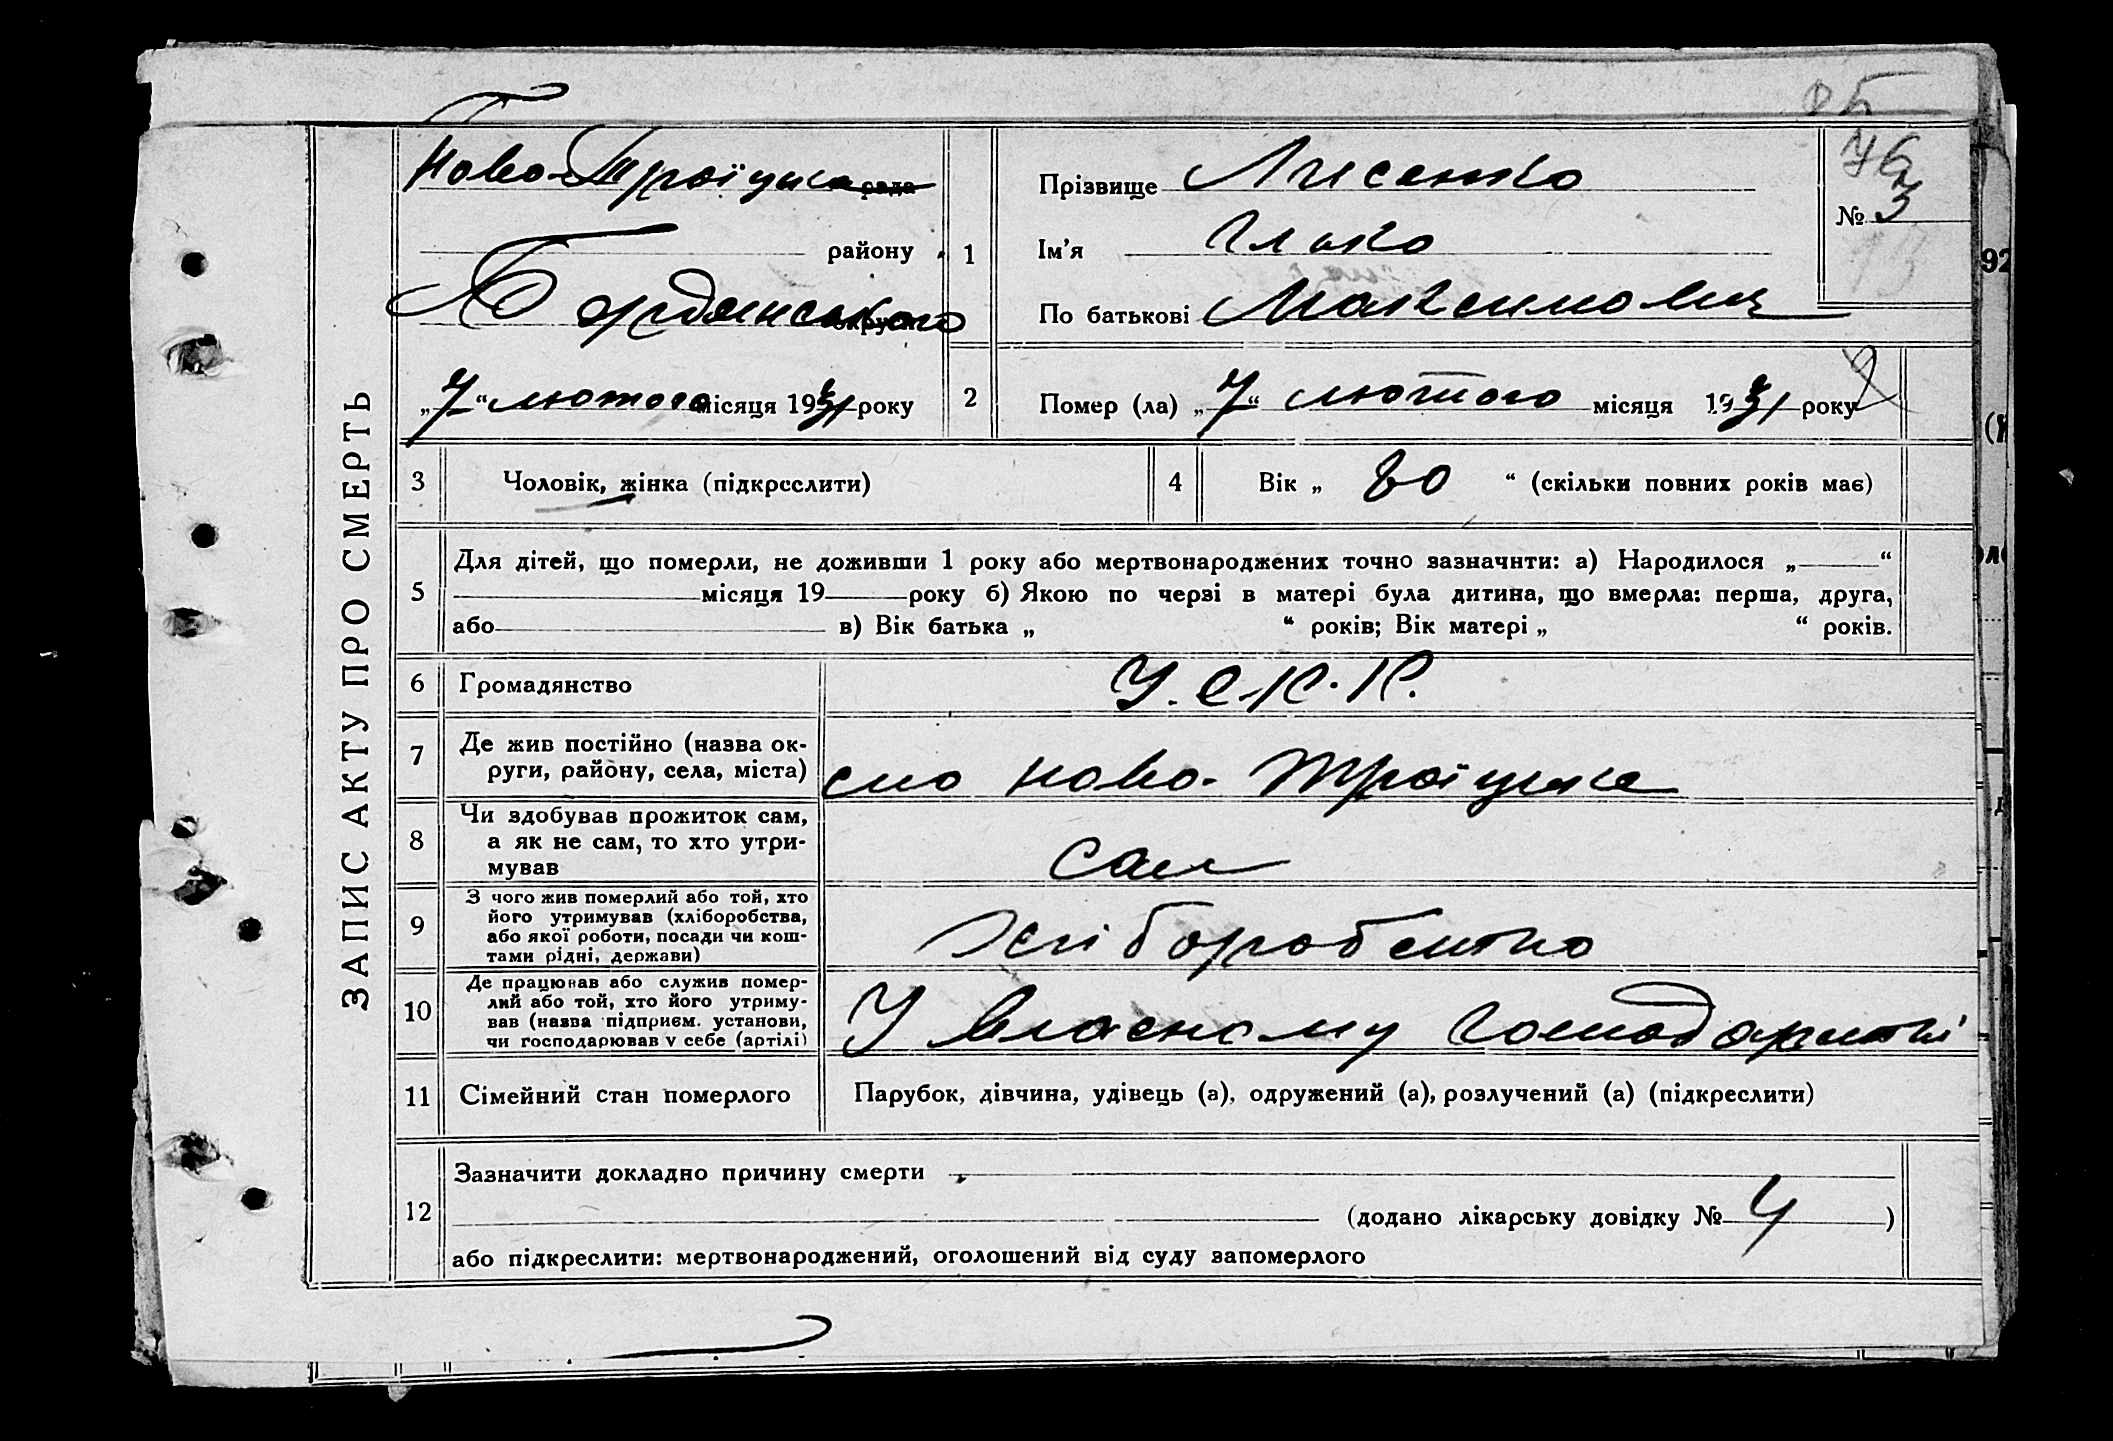 85
ЗАПИС АКТУ ПРО СМЕРТЬ
Ново-Троїцька рада
району
Бердянського округи
„7“ лютого місяця 1931 року
1
Прізвище Лисенко
Ім'я Ілько
По батькові Максимович
76
№ 3
13
2
Помер (ла) „7“ лютого місяця 1931 року
3
Чоловік, жінка (підкреслити)
4
Вік „ 80 “ (скільки повних років має)
5
Для дітей, що померли, не доживши 1 року або мертвонароджених точно зазначити: а) Народилося „ “
місяця 19 року б) Якою по черзі в матері була дитина, що вмерла: перша, друга,
або в) Вік батька „ “ років; Вік матері „ “ років.
6
Громадянство
У.С.Р.Р.
7
Де жив постійно (назва ок-
руги, району, села, міста)
село Ново-Троїцьке
8
Чи здобував прожиток сам,
а як не сам, то хто утри-
мував
сам
9
З чого жив померлий або той, хто
його утримував (хліборобства,
або якої роботи, посади чи кош-
тами рідні, держави)
Хліборобство
10
Де працював або служив помер-
лий або той, хто його утриму-
вав (назва підприєм. установи,
чи господарював у себе (артілі)
У власному господарстві
11
Сімейний стан померлого
Парубок, дівчина, удівець (а), одружений (а), розлучений (а) (підкреслити)
12
Зазначити докладно причину смерти
(додано лікарську довідку № 4 )
або підкреслити: мертвонароджений, оголошений від суду запомерлого